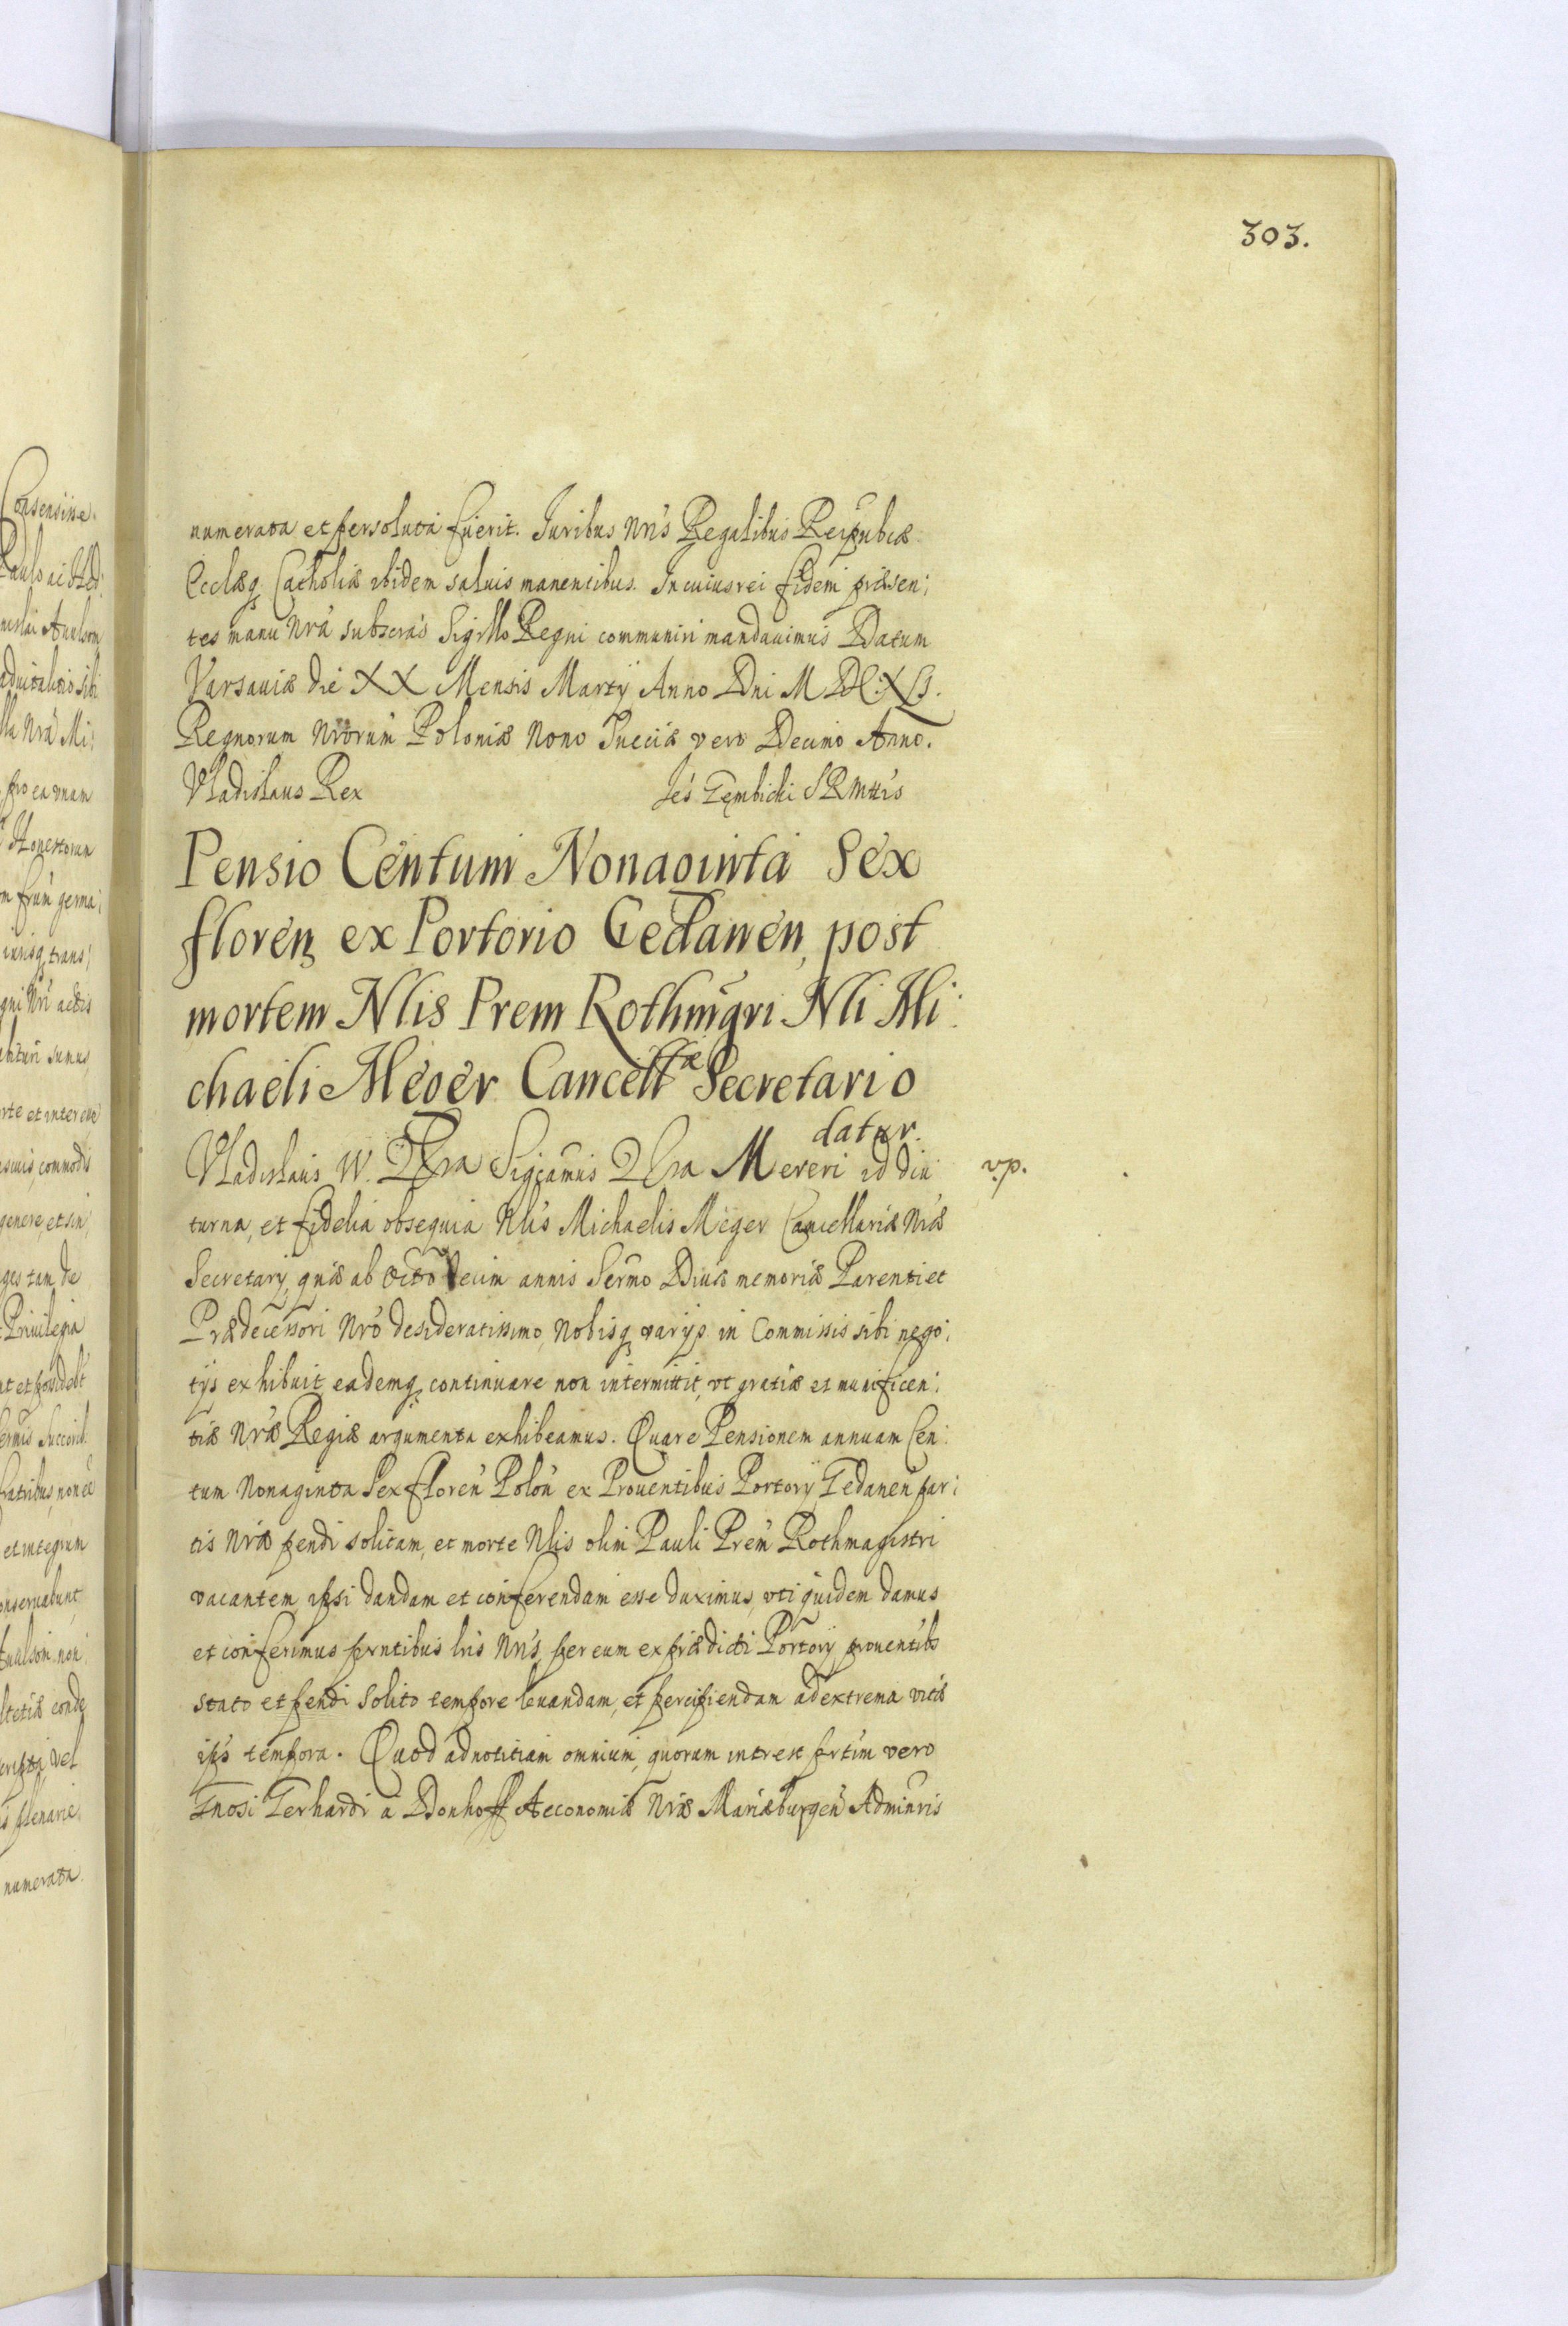 303.
numerata et persoluta fuerit. Juribus Nris Regalibus Reipublicæ
Ecclæq Catholicæ ibidem saluis manentibus. In cuius rei fidem præsen:
tes manu Nrâ subscras Sigillo Regni communiri mandauimus Datum
Varsauiæ die XX Mensis Martÿ Anno Dni M DC:XLI.
Regnorum Nrorum Poloniæ Nono Sueciæ vero Decimo Anno.
Vladislaus Rex Jes Gembicki SRMttis
Pensio Centum Nonaginta Sex
floren ex Portorio Gedanen, post
mortem Nlis Prem Rothmgri Nli Mi:
chaeli Meger Cancellæ Secretario
datur.
Vladislaus IV. DGra Sigcamus DGra Mereri id diu v.p.
turna, et fidelia obsequia Nlis Michaelis Meger Cancellariæ Nræ
Secretarÿ, quæ ab Octo decim annis Sermo Diuæ memoriæ Parenti et
Prædecessori Nro desideratissimo, Nobisq varÿs in Commissis sibi nego:
tÿs exhibuit, eademq continuare non intermittit, vt gratiæ et munificen:
tiæ Nræ Regiæ argumenta exhibeamus. Quare Pensionem annuam Cen:
tum Nonaginta Sex floren Polon ex Prouentibus Portorÿ Gedanen par:
tis Nræ pendi solitam, et morte Nlis olim Pauli Prem Rothmagistri
vacantem, ipsi dandam et conferendam esse duximus, vti quidem damus
et conferimus prntibus lris Nris, per eum ex prædicti Portorÿ prouentibs
stato et pendi solito tempore leuandam, et percipiendam ad extrema vitæ
ipss tempora. Quod ad notitiam omnium, quorum intrest prtim vero
Gnosi Gerhardi a Donhoff Aeconomiæ Nræ Mariæburgen Adminris